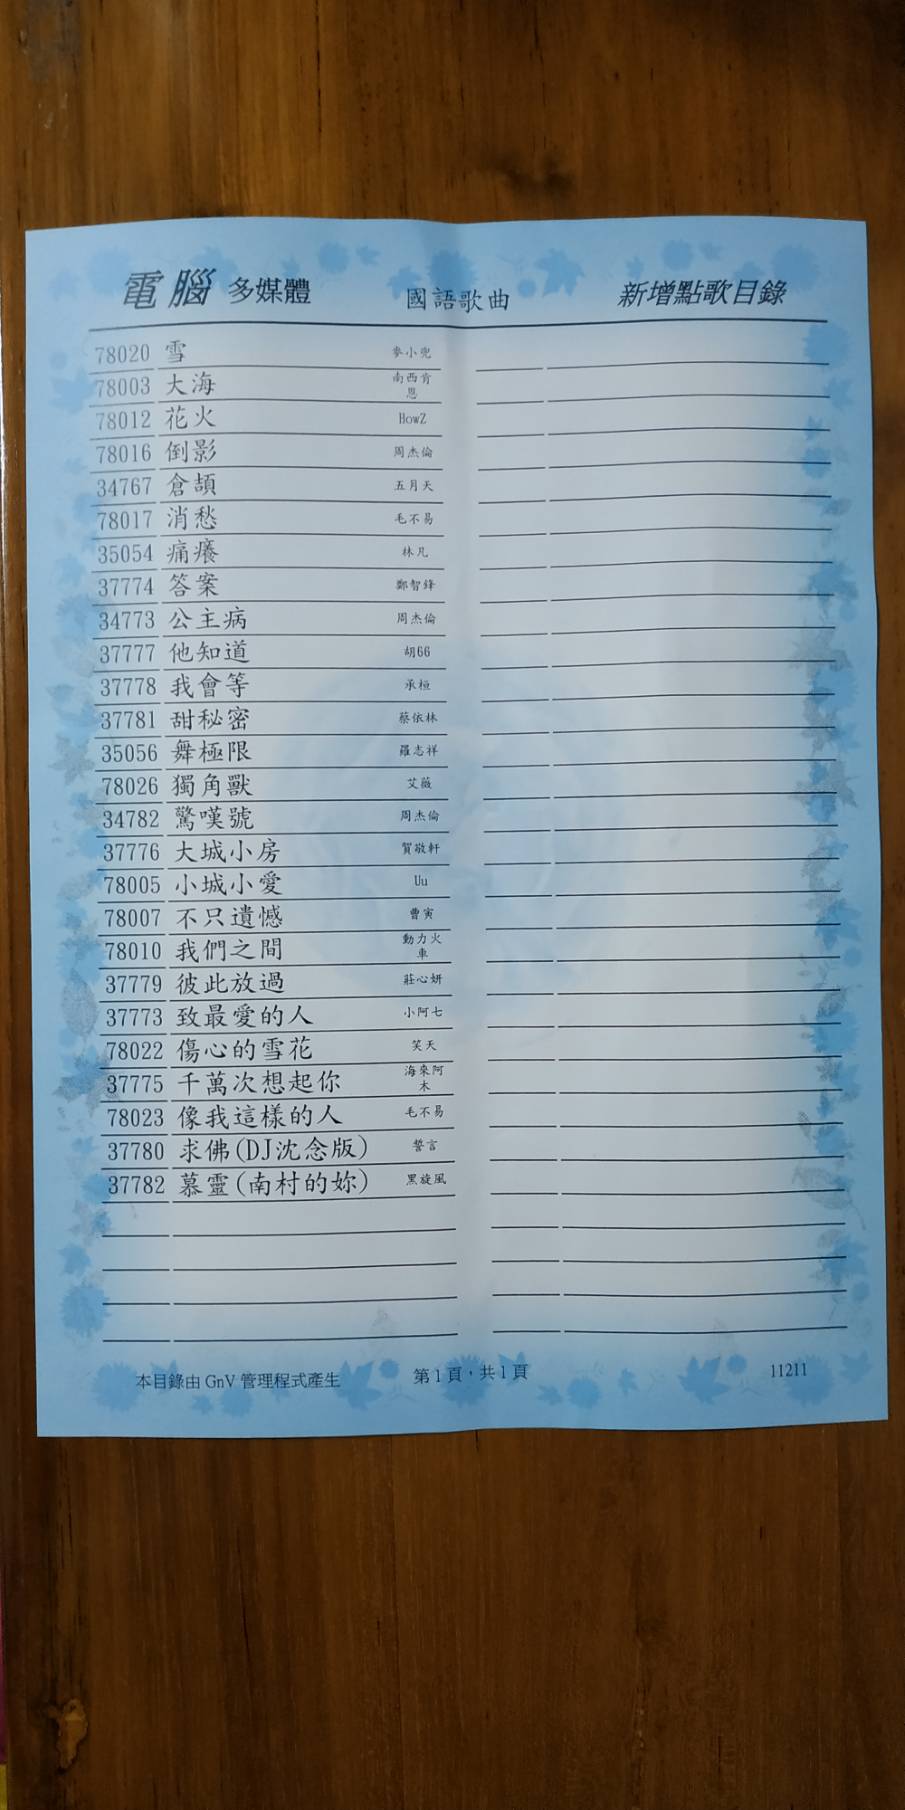 電腦 多媒體 國語歌曲 新增點歌目錄
78020 雪 麥小兜
78003 大海 南西肯恩
78012 花火 HowZ
78016 倒影 周杰倫
34767 倉頡 五月天
78017 消愁 毛不易
35054 痛癢 林凡
37774 答案 鄭智鋒
34773 公主病 周杰倫
37777 他知道 胡66
37778 我會等 承桓
37781 甜秘密 蔡依林
35056 舞極限 羅志祥
78026 獨角獸 艾薇
34782 驚嘆號 周杰倫
37776 大城小房 賀敬軒
78005 小城小愛 Uu
78007 不只遺憾 曹寅
78010 我們之間 動力火車
37779 彼此放過 莊心妍
37773 致最愛的人 小阿七
78022 傷心的雪花 笑天
37775 千萬次想起你 海來阿木
78023 像我這樣的人 毛不易
37780 求佛(DJ沈念版) 誓言
37782 慕靈(南村的妳) 黑旋風
本目錄由 GnV 管理程式產生 第1頁，共1頁 11211